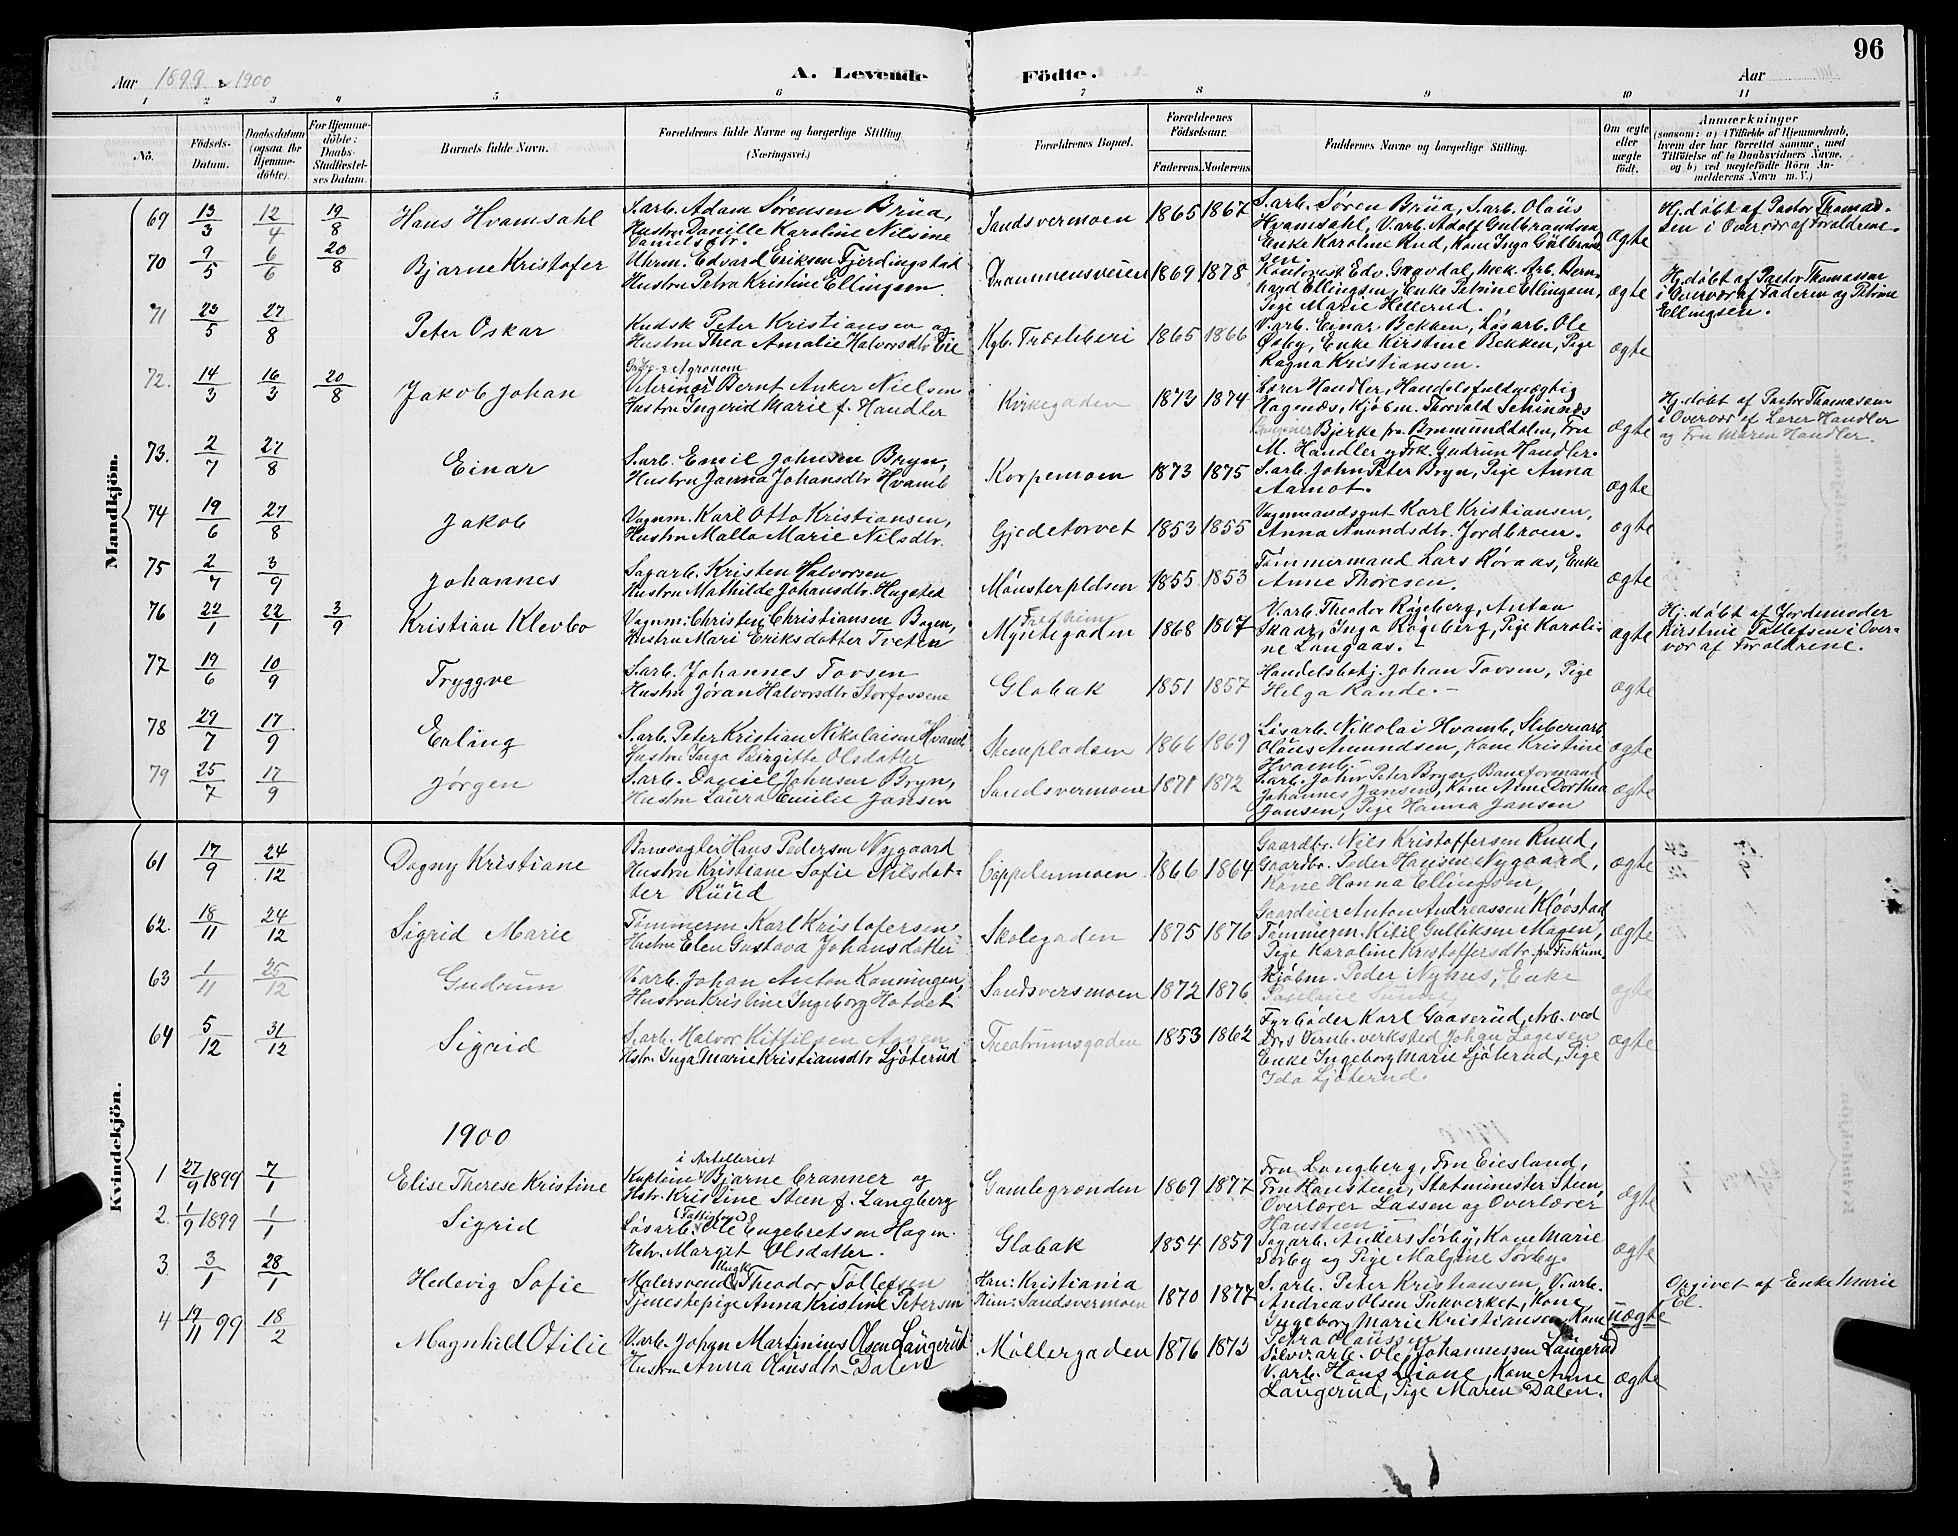 96
Aar 1899 & 1900
A. Levende Födte.
Aar
1 2 3 4 5 6 7 8 9 10 11
No.
Födsels-Datum.
Daabsdatum (ogsaa for Hjemmedöbte).
For Hjemmedöbte: Daabs-Stadfæstelses Datum.
Barnets fulde Navn.
Forældrenes fulde Navne og borgerlige Stilling. (Næringsvei.)
Forældrenes Bopæl.
Forældrenes Födselsaar.
Faderens. Moderens.
Faddernes Navne og borgerlige Stilling.
Om ægte eller uægte födt.
Anmærkninger
(saasom: a) i Tilfælde af Hjemmedaab, hvem der har forrettet samme, med Tilföielse af to Daabsvidners Navne, og b) ved uægtefödte Börn Anmelderens Navn m. V.)
Mandkjön.
69 13/3 12/4 19/8 Hans Hvamsahl
S.arb. Adam Sørensen Brüa,
Hustru Danille Karoline Nilsine
Danielsdtr.
Sandsvermoen 1865 1867
S.arb. Søren Brüa, S.arb. Olaüs
Hvamsahl, V.arb. Adolf Gulbrandsen
Enke Karoline Rud, Kone Inga Gülbrandsen.
ægte
Hj.døbt af Pastor Thomassen i Overvær af Forældrene.
70 9/5 6/6 20/8 Bjarne Kristofer
Uhrm. Edvard Eriksen Fjerdingstad
Hustru Petra Kristine Ellingsen.
Drammensveien 1869 1878
Kontorist Edv. Gaavdal, mek. Arb. Bernhard Ellingsen, Enke Petrine Ellingsen,
Pige Marie Hellerud.
ægte
Hj.døbt af Pastor Thomassen
i Overvær af Faderen og Petrine
Ellingsen.
71 23/5 27/8 Peter Oskar
Kudsk Peter Kristiansen og
Hustru Thea Amalie Halvorsdtr Eie
Kgb. Træsliberi 1865 1866
V.arb. Einar Bekken, Løsarb. Ole
Øsby, Enke Kirstine Bekken, Pige
Ragna Kristiansen.
ægte
72. 14/3 16/3 20/8 Jakob Johan
Agronom
Veterinær Bernt Anker Nielsen
Hustru Ingerid Marie f. Handler
Kirkegaden 1873 1874
Lærer Handler, Handelsfuldmægtig
Hagenæs, Kjøbm. Thorvald Schinnæs
Bjerke fra Brumunddalen, Fru
M. Handler og Frk. Gudrun Handler.
ægte
Hj.døbt af Pastor Thomassen
i Overvær af Lærer Handler
og Fru Maren Handler.
73. 2/7 27/8 Einar
S.arb. Emil Johnsen Bryn,
Hustru Janna Johansdtr Hvamb
Korpemoen 1873 1875
S.arb. John Peter Bryn, Pige Anna
Aamot.
ægte
74 19/6 27/8 Jakob
Vognm. Karl Otto Kristiansen,
Hustru Malla Marie Nilsdtr.
Gjedetorvet 1853 1855
Vognmandsgut Karl Kristiansen,
Anna Amundsdtr. Jordbroen.
ægte
75 2/7 3/9 Johannes
Sagarb. Kristen Halvorsen
Hustru Mathilde Johansdtr. Hugsted
Mønsterpldsen 1855 1853
Tømmermand Lars Røraas, Enke
Anne Thoresen.
ægte
76 22/1 22/1 3/9 Kristian Klevbo
Vognm: Christen Christiansen Bogen,
Hustru Mari Eriksdatter Tveten
Myntegaden 1868 1867
V.arb. Theodor Røgeberg, Anton
Skaar, Inga Røgeberg, Pige Karoline Langaas. -
ægte
Hj.døbt af Jordemoder
Kirstine Tollefsen i Overvær af Forældrene.
77 19/6 10/9 Tryggve
S.arb. Johannes Tovsen
Hustru Jøran Halvorsdtr Storfossene
Glabak 1851 1857
Handelsbetj. Johan Tovsen, Pige
Helga Rande. -
ægte
78 29/7 17/9 Erling
S.arb. Peter Kristian Nikolaisen Hvamb
Hustru Inga Birgitte Olsdatter
Stempladsen 1866 1869
Løsarb. Nikolai Hvamb, Sliberiarb.
Olaus Amundsen, Kone Kristine
Hvamb. -
ægte
79 25/7 17/9 Jørgen
S.arb. Daniel Johnsen Bryn,
Hustru Laura Emilie Jansen
Sandsvermoen 1871 1872
S.arb. John Peter Bryn, Baneformand
Johannes Jansen, Kone Anne Dorthea
Jansen, Pige Hanna Jansen
ægte
Kvindekjön.
61 17/9 24/12 Dagny Kristiane
Banevogter Hans Pedersen Nygaard
Hustru Kristiane Sofie Nilsdatter Rüüd
Cappelenmoen 1866 1864
Gaardbr. Nils Kristoffersen Ruud,
Gaardbr. Peder Hansen Nygaard,
Kone Hanna Ellingsen,
ægte
62. 18/11 24/12 Sigrid Marie
Tømmerm. Karl Kristofersen
Hustru Elen Gustava Johansdatter
Skolegaden 1875 1876
Gaardeier Anton Andreassen Kløvstad
Tømmerm. Kittil Gulliksen Moen,
Pige Karoline Kristoffersdtr. fra Fiskum
ægte
63 1/11 25/12 Gudrun
V.arb. Johan Anton Konningen,
Hustru Kristine Ingeborg Hotvet
Sandsversmoen 1872 1876
Kjøbm. Peder Nyhus, Enke
ægte
64 5/12 31/12 Sigrid
S.arb. Halvor Kittilsen Aasen
Hstr. Inga Marie Kristiansdtr Ljøterüd
Theatrumsgaden 1853 1862
Fyrbøder Karl Gaaserüd, Arb. ved
Verksted Johan Lagesen
Enke Ingeborg Marie Ljøterud, Pige
Ida Ljøterud.
ægte
1900
1 27/9 1899 7/1 Elise Therese Kristine
i Artelleriet
Kaptein Bjarne Cranner og
Hstr. Kristine Steen f. Langberg
Gamlegrænden 1869 1877
Fru Langberg, Fru Eiesland,
Fru Hansteen, Statminister Steen,
Overlærer Lassen og Overlærer
Hansteen -
ægte
2. 1/9 1899 1/1 Sigrid
(Fattigbud)
Løsarb. Ole Engebretsen Hagen.
Hstr. Margit Olsdatter.
Glabak 1854 1859
Sagarb. Anders Sørby, Kone Marie
Sørby og Pige Malfine Sørby.
ægte
3. 3/1 28/1 Hedevig Sofie
Ungk.
Malersvend Theodor Tollefsen
Tjenestepige Anna Kristine Petersen
Han: Kristiania
Hun: Sandsvermoen 1870 1877
S.arb. Peter Kristiansen, V.arb.
Andreas Olsen Pukverket, Kone
Ingeborg Marie Kristiansen, Kone
Petra Olaüssen
uægte
Opgivet af Enke Marie
El.
4 19/11 99 18/2 Magnhild Otilie
V.arb. Johan Martinius Olsen Langerüd
Hustru Anna Olausdtr. Dalen
Møllergaden 1876 1873
Sølvv.arb. Ole Johannessen Langerüd
V.arb. Hans Liane, Kone Anne
Langerüd, Pige Maren Dalen.
ægte